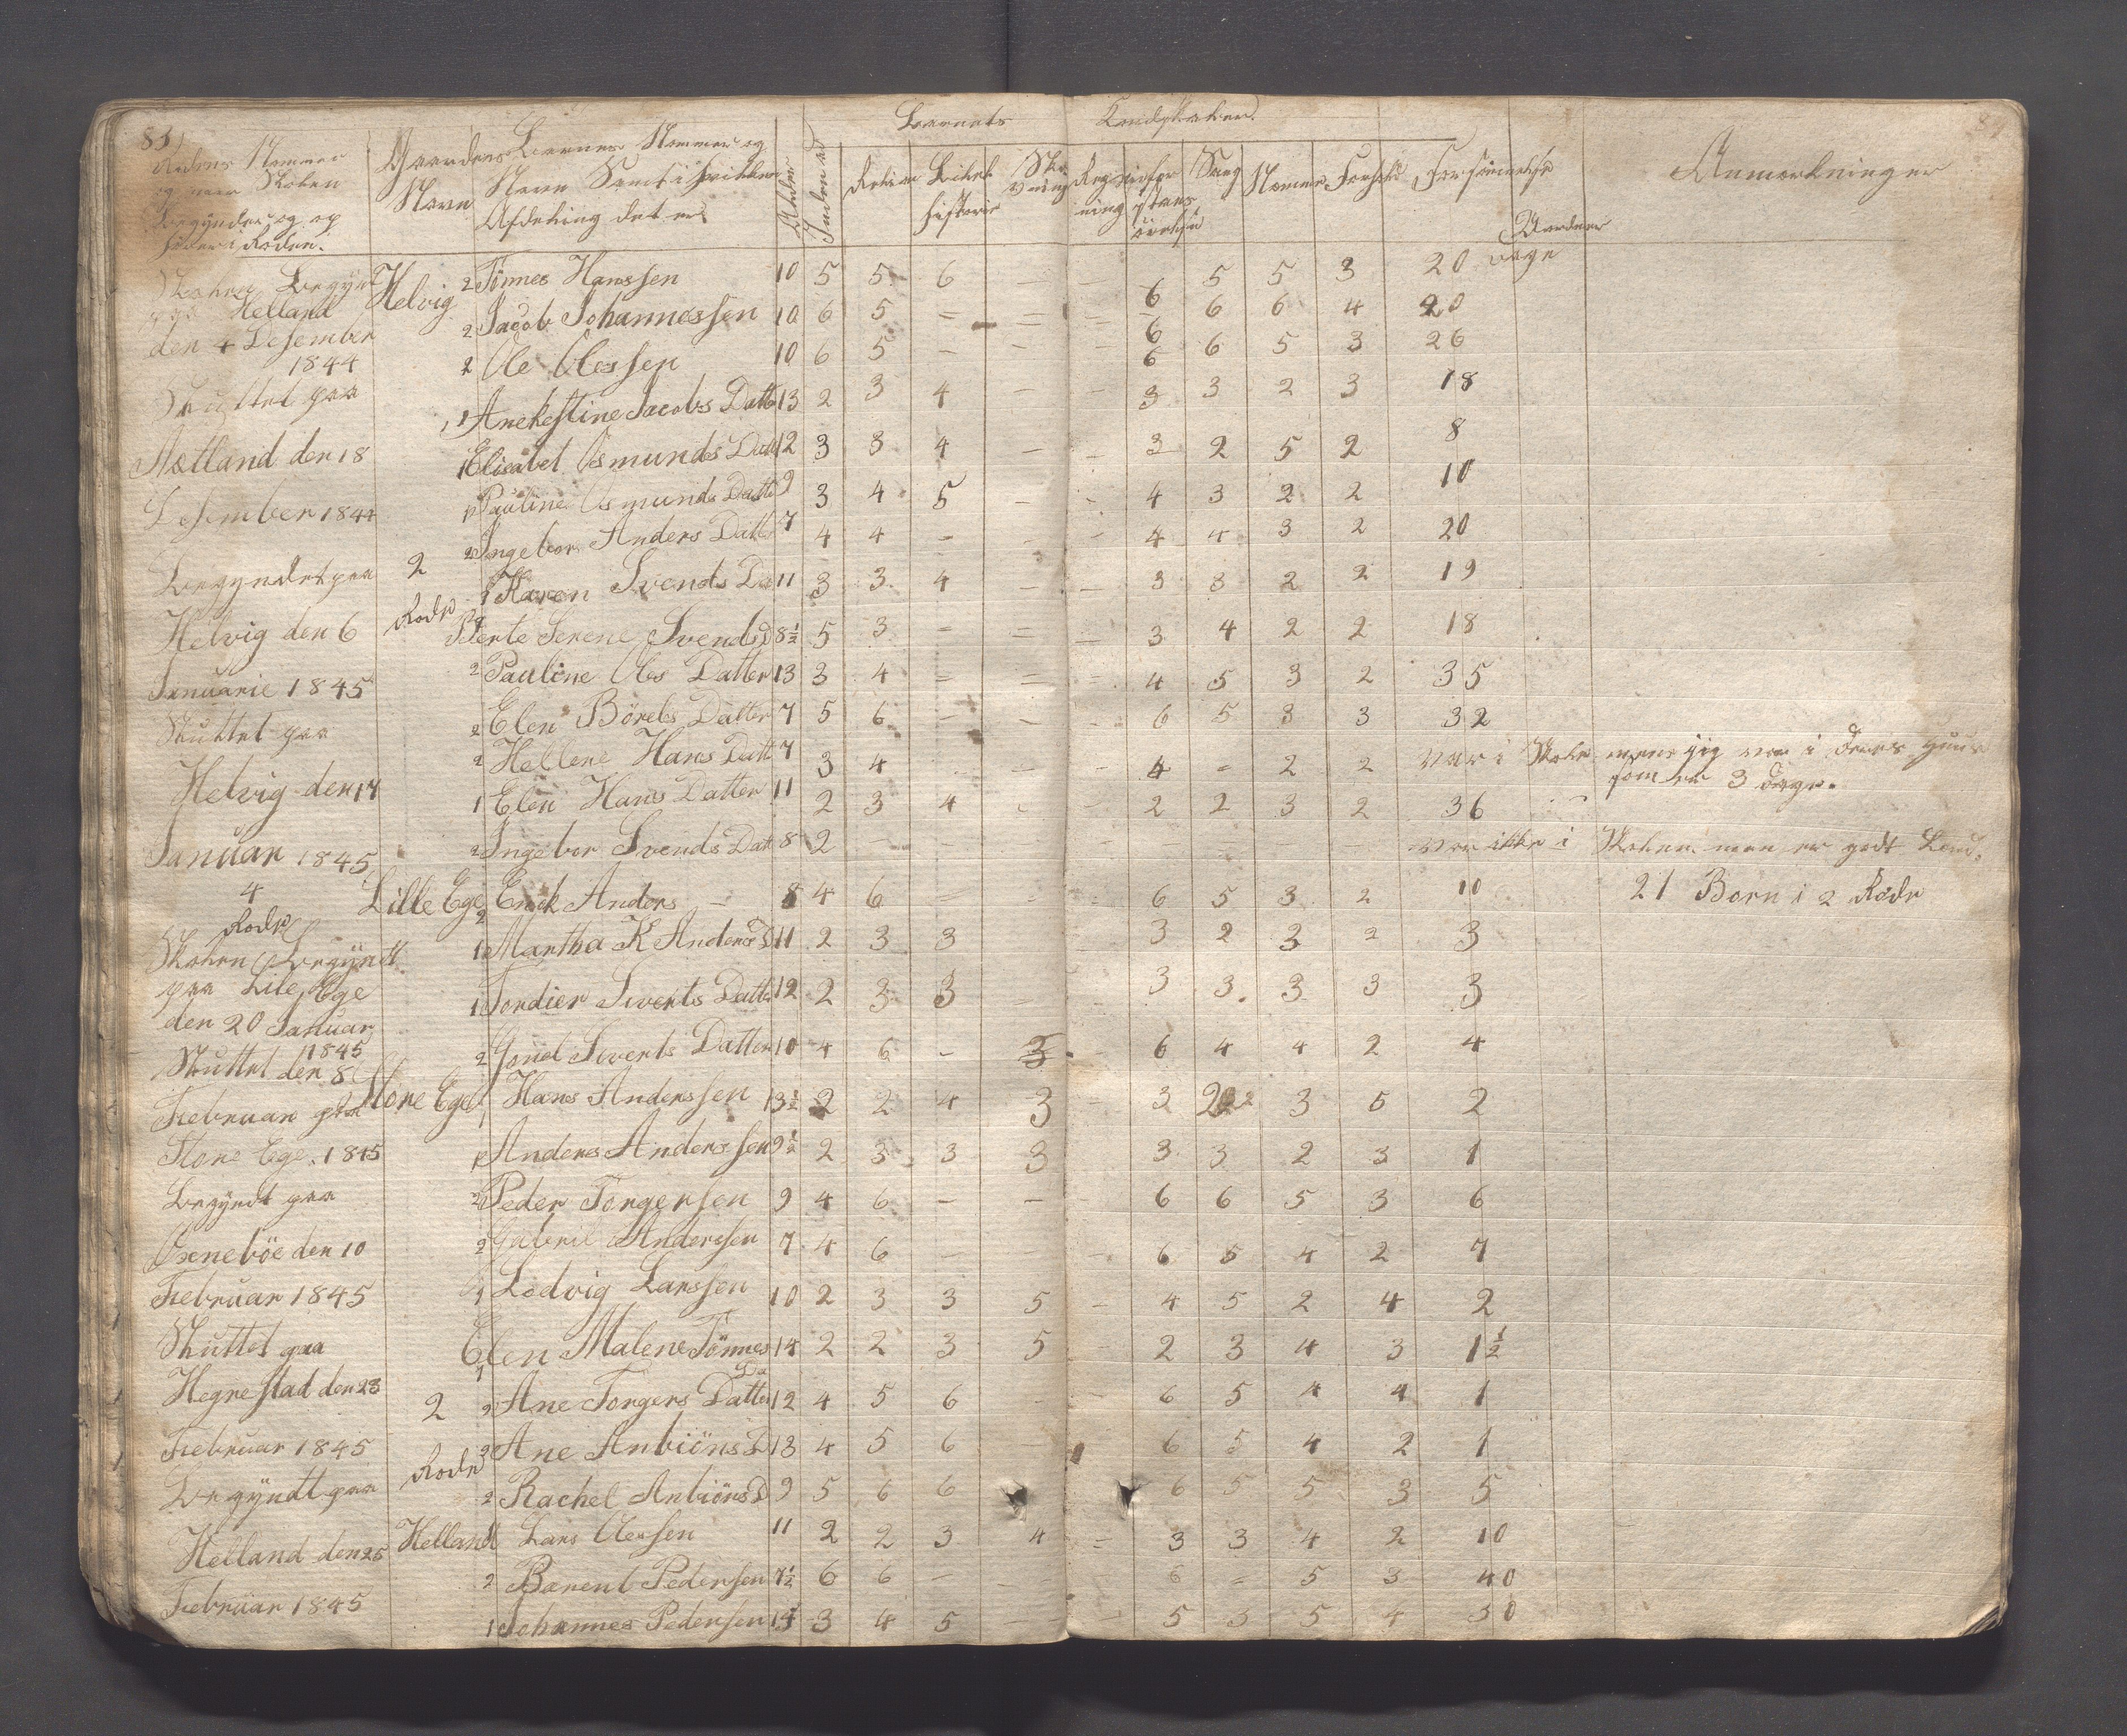 83)
Barnets Kundskaber.
Rodens Nommer og naar Skolen begyndes og op hører i Roden.
Gaardens Navn
Børnenes Nommer og Navn Samt i hvilken Afdeling det er
Alder
Religion
Bibel historie
Skrivning
Regning
Sang
Nomme
Forhold
Forsømmelse
Anmærkninger
Skolen Begynt
paa Helland
den 4 Desember
1844
Sluttet paa
Aatland den 18
Desember 1844
Begyndet paa
Helvig den 6
Januarie 1845
Sluttet paa
Helvig den 17
Januar 1845
4
Rode
Skolen Begyndt
paa Lile Ege
den 20 Januar
1845
Sluttet den 8
Februar paa
Store Ege 1845
Begyndt paa
Øsenebøe den 10
Februar 1845
Sluttet paa
Hegrestad den 28
Februar 1845
Begyndt paa
Helland den 25
Februar 1845
Helvig 2 Tønnes Hanssen 10 5 5 6 – – 6 5 5 3 20 Dage
2 Jacob Johannessen 10 6 5 = = – 6 6 6 4 20
2 Ole Olessen 10 6 5 – – – 6 6 5 3 26
1 Anekestine Jacobs Datt 13 2 3 4 – – 3 3 2 3 18
1 Elisabet Osmunds Datt 12 3 3 4 – – 3 2 5 2 8
1 Pauline Osmunds Datt 9 3 4 5 – – 4 3 2 2 10
2 Ingebor Anders Datt 7 4 4 – – – 4 4 3 2 20
2 Rode
1 Karen Svends Da 11 3 3 4 – – 3 3 2 2 19
2 Berte Serene Svends D 8½ 5 3 = = – 3 4 2 2 18
2 Pauline Oles Datter 13 3 4 = = = 4 5 3 2 35
2 Elen Børels Datter 7 5 6 – – – 6 5 3 3 32
2 Hellene Hans Datt 7 3 4 – – – 4 – 2 2 var i Skole mens jeg var i deres Huus som er 3 Dage.
1 Elen Hans Datter 11 2 3 4 – – 2 2 3 2 36
2 Ingebor Svends Dat 8 2 – – – – – – – – var ikke i Skolen men er godt Kend.
Lille Ege 2 Enok Anders – 8 4 6 = – – 6 5 3 2 10 21 Born i 2 Rode
1 Martha K Anders D 11 2 3 3 3 2 3 2 3
1 Tordier Siverts Datt 12 2 3 3 – 3 3 3 3 3
2 Goniel Siverts Datter 10 4 6 – 3 – 6 4 4 2 4
Store Ege 1 Hans Anderssen 13½ 2 2 4 3 – 3 2 3 5 2
1 Anders Anderssen 9½ 2 3 3 3 3 3 2 3 1
2 Peder Torgersen 9 4 6 – – – 6 6 5 3 6
2 Gabriel Anderssen 7 4 6 – – 6 5 4 2 7
1 Lodvig Larssen 10 2 3 3 5 – 4 5 2 4 2
1 Elen Malene Tønnes Da 14 2 2 3 5 – 2 3 4 3 1½
2 Rode
2 Ane Torgers Datter 12 4 5 6 – 6 5 4 4 1
2 Ane Anbiöns D 13 4 5 6 6 5 4 2 1
2 Rachel Anbiöns D 9 5 6 6 6 5 5 3 5
Helland 1 Lars Olessen 11 2 2 3 4 = 3 3 4 2 10
2 Barent Pedersen 7½ 6 6 – – 6 – 5 3 40
1 Johannes Pedersen 14 3 4 5 – – 5 3 5 4 30